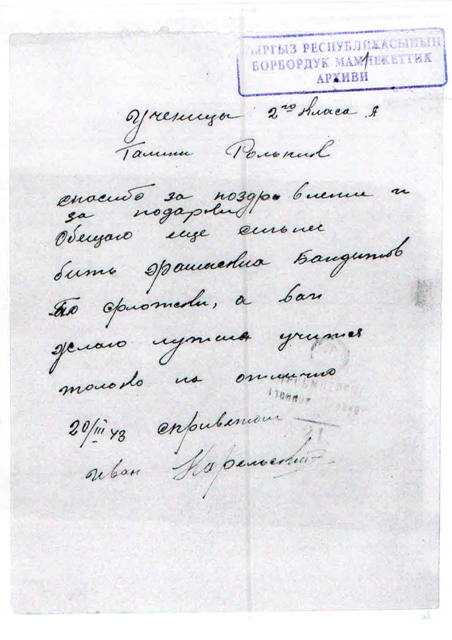 КЫРГЫЗ РЕСПУБЛИКАСЫНЫН
БОРБОРДУК МАМЛЕКЕТТИК
АРХИВИ
Ученицы 2го класа А
Галини
спасибо за поздровление и
за подарки
Обещаю еще сильнее
бить фашиских Бандитов
а вам
желаю лутше учится
только на отлично
20/III 43 сприветом
Иван Карельский